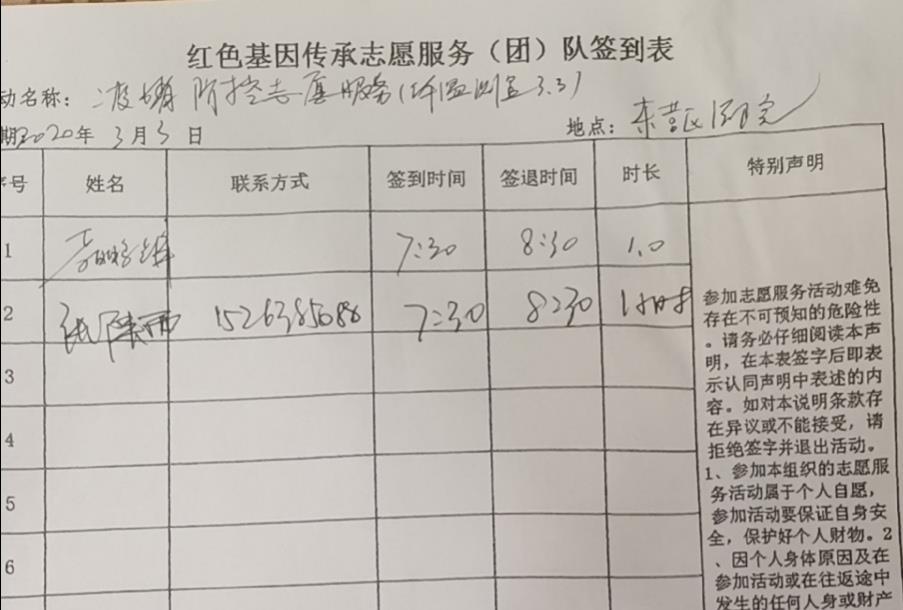 红色基因传承志愿服务（团）队签到表
动名称：疫情防控志愿服务(体温测量3.3)
期2020年 3月3日 地点：东营区
序号 姓名 联系方式 签到时间 签退时间 时长 特别声明
1 7:30 8:30 1.0
2 7:30 8:30 1小时
3
4
5
6
参加志愿服务活动难免
存在不可预知的危险性
。请务必仔细阅读本声
明，在本表签字后即表
示认同声明中表述的内
容。如对本说明条款存
在异议或不能接受，请
拒绝签字并退出活动。
1、参加本组织的志愿服
务活动属于个人自愿，
参加活动要保证自身安
全，保护好个人财物。2
、因个人身体原因及在
参加活动或在往返途中
发生的任何人身或财产